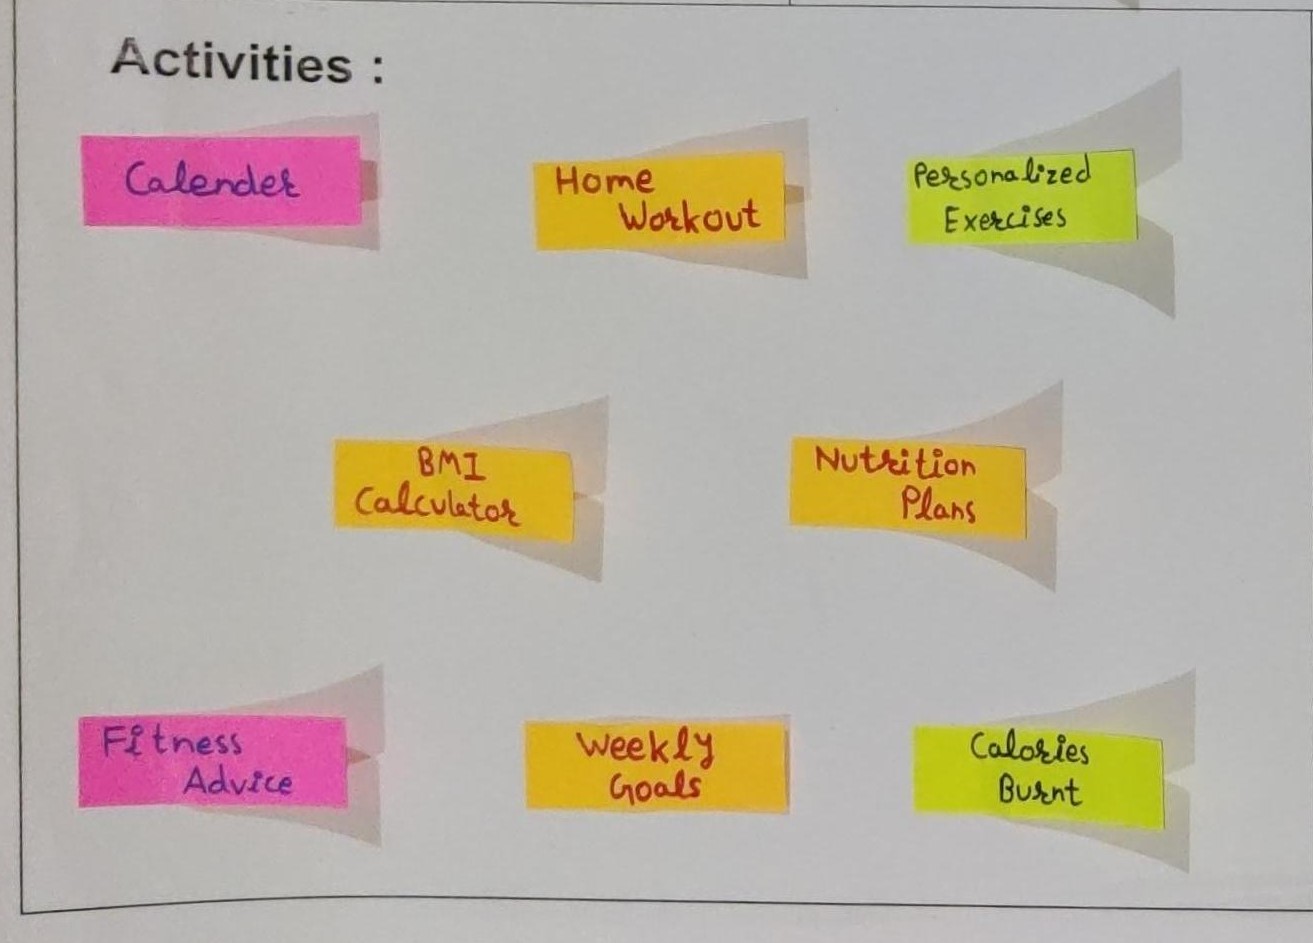 Activities :
Calender
Home
Workout
Personalized
Exercises
BMI
Calculator
Nutrition
Plans
Fitness
Advice
Weekly
Goals
Calories
Burnt